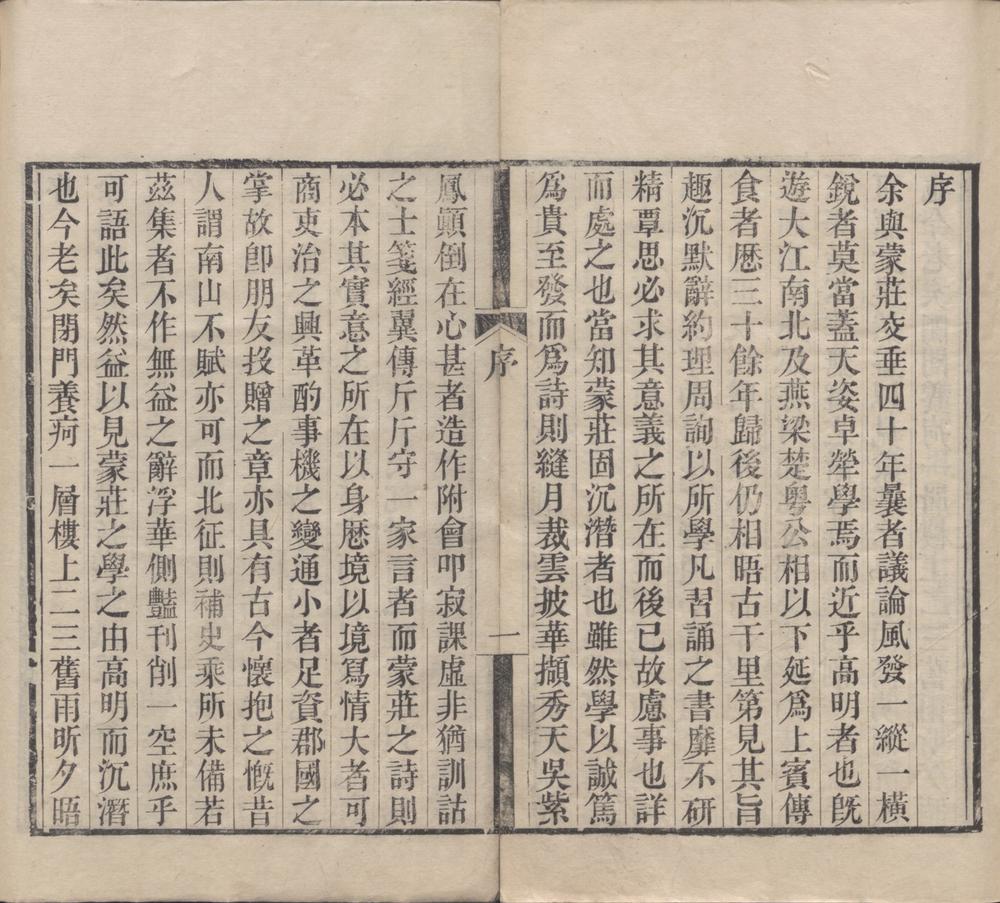 序
余與蒙莊交垂四十年曩者議論風發一縱一橫
銳者莫當蓋天姿卓犖學焉而近乎高明者也旣
遊大江南北及燕梁楚粵公相以下延爲上賓傳
食者歷三十餘年歸後仍相晤古干里第見其旨
趣沉默辭約理周詢以所學凡習誦之書靡不研
精覃思必求其意義之所在而後已故慮事也詳
而處之也當知蒙莊固沉潛者也雖然學以誠篤
爲貴至發而爲詩則縫月裁雲披華擷秀天吳紫
序
一
鳳顚倒在心甚者造作附會叩寂課虛非猶訓詁
之士箋經翼傳斤斤守一家言者而蒙莊之詩則
必本其實意之所在以身歷境以境寫情大者可
商吏治之興革酌事機之變通小者足資郡國之
掌故卽朋友投贈之章亦具有古今懷抱之慨昔
人謂南山不賦亦可而北征則補史乘所未備若
茲集者不作無益之辭浮華側豔刊削一空庶乎
可語此矣然益以見蒙莊之學之由高明而沉潛
也今老矣閉門養疴一層樓上二三舊雨昕夕晤